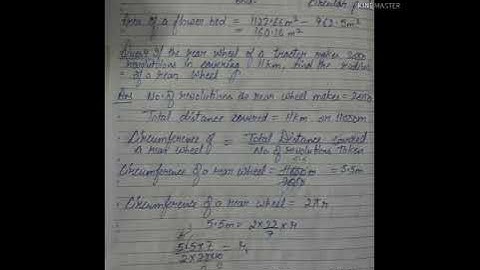 Circular
KINEMASTER
Area of a flower bed = 1127.66m² - 962.5m²
= 160.16m²
If the rear wheel of a tractor makes 2000
revolutions in covering 11km, find the radius
of a rear wheel
Ans No. of revolutions the rear wheel makes = 2000
Total distance covered = 11km or 11000m
Circumference of = Total Distance covered
A rear wheel No. of revolutions Taken
Circumference of a rear wheel = 11000m = 5.5m
2000
Circumference of a rear wheel = 2πr
5.5m = 2 × 22 × r
7
5.5 × 7 = r
2 × 22